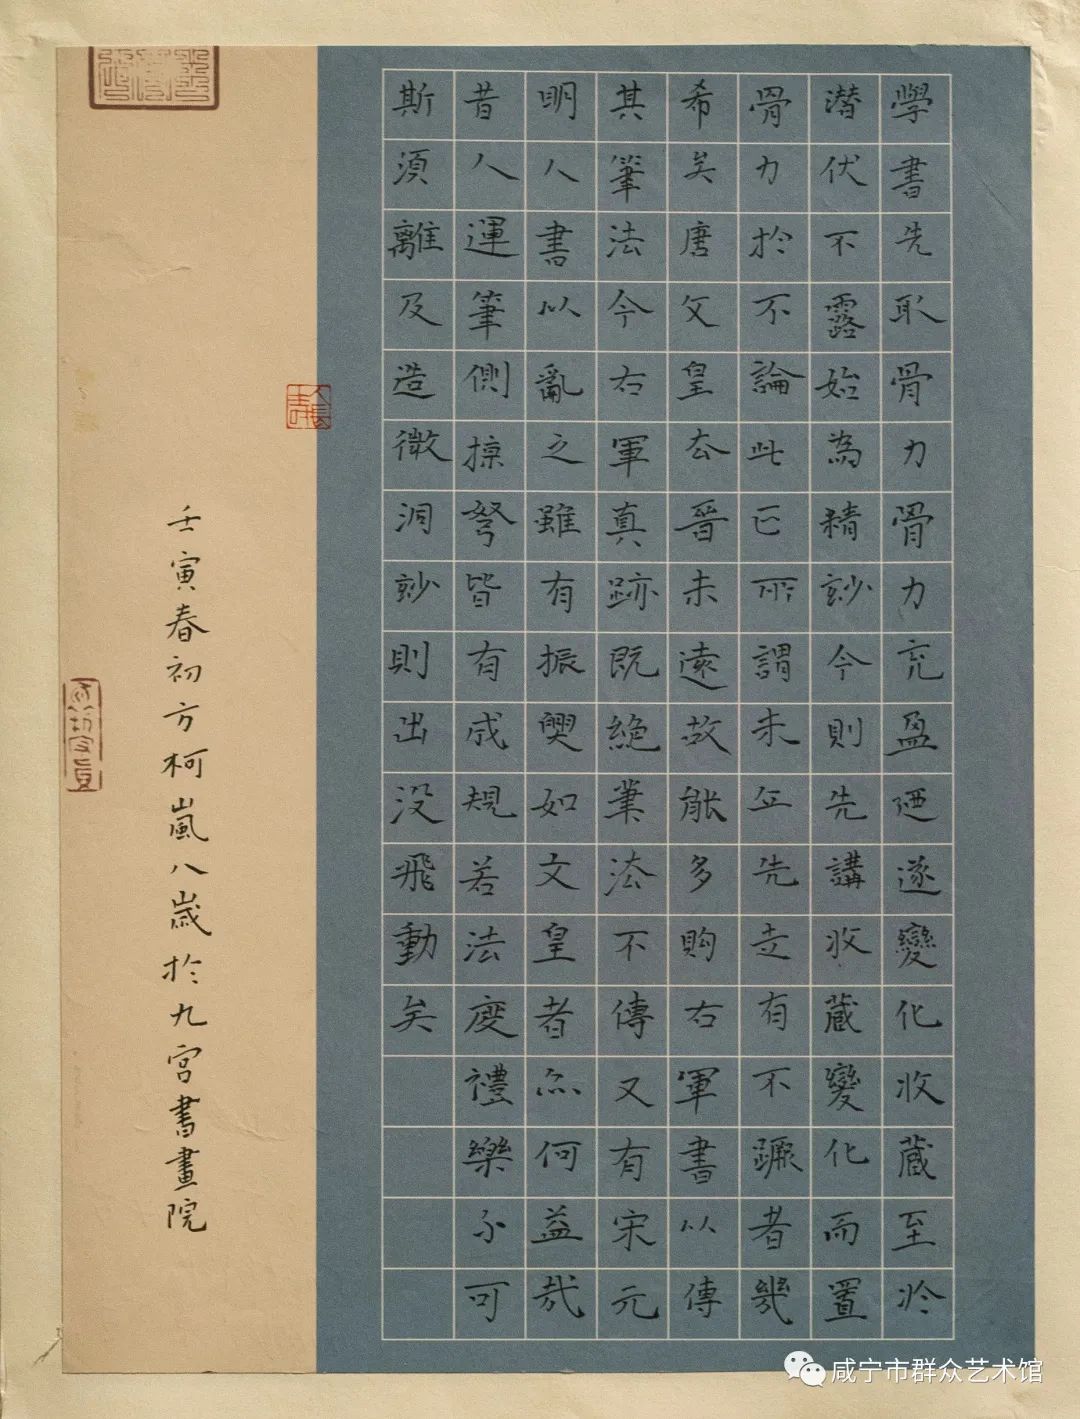 學書先取骨力骨力充盈廼遂變化收蔵至於
潜伏不露始為精妙今則先講收蔵變化而置
骨力於不論此正所謂未立先走有不蹶者幾
希矣唐文皇去晉未遠故能多購右軍書以傳
其筆法今右軍真跡既絶筆法不傳又有宋元
明人書以亂之雖有振興如文皇者亦何益哉
昔人運筆側掠弩皆有成規若法度禮樂不可
斯須離及造微洞妙則出没飛動矣
壬寅春初方柯嵐八歲於九宮書畫院
咸宁市群众艺术馆